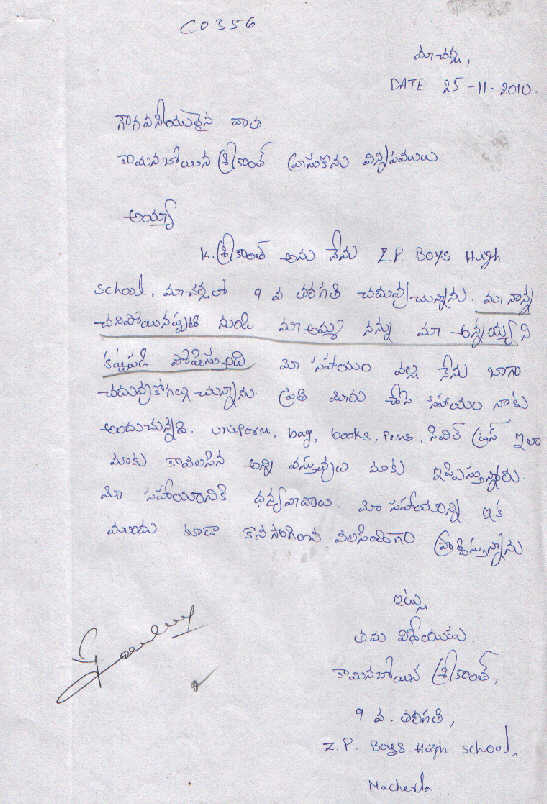 C0356
మాచర్ల,
DATE 25-11-2010.
గౌరవనీయులైన చార
కామనబోయిన శ్రీకాంత్ వ్రాసుకొను విన్నపములు
అయ్యా
K. శ్రీకాంత్ అను నేను Z.P Boys Hugh
school, మాచర్లలో 9 వ తరగతి చదువుచున్నాను. మా నాన్న
చనిపోయినప్పటి నుండి మా అమ్మ నన్ను మా అన్నయ్యని
కష్టపడి పోషిస్తుంది మీ సహాయం వల్ల నేను బాగా
చదువుకోగల్గుచున్నాను ప్రతి నీ సహాయం నాకు
అందుచున్నది. uniform, bag, books, Pens, సివిల్ డ్రస్ ఇలా
మాకు కావలసిన అన్ని వస్తువులు మాకు ఇప్పిస్తున్నారు.
మీ సహాయానికి ధన్యవాదాలు. మీ సహాయాన్ని ఇక
ముందు కూడా కొనసాగించ వలసిందిగా ప్రార్థిస్తున్నాను
ఇట్లు
తమ విధేయుడు
కామనబోయిన శ్రీకాంత్,
9 వ. తరగతి,
Z.P. Boys High school,
Macherla